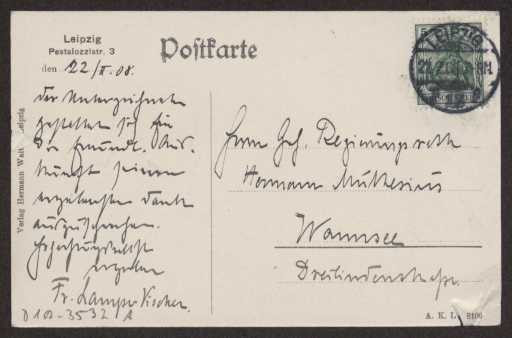 Leipzig
Pestalozzistr. 3
den 22/II. 08.
Postkarte
LEIPZIG
Der Unterzeichnete
gestattet sich für
die freundl. Aus-
kunft seinen
ergebensten Dank
auszusprechen.
Hochachtungsvollst
ergeben
Fr. Lampe-Vischer.
D 102-3532 A
Herrn Geh. Regierungsrath
Hermann Muthesius
Wannsee
Dreilindenstraße
Verlag Hermann Leipzig
A. K. L. 8106